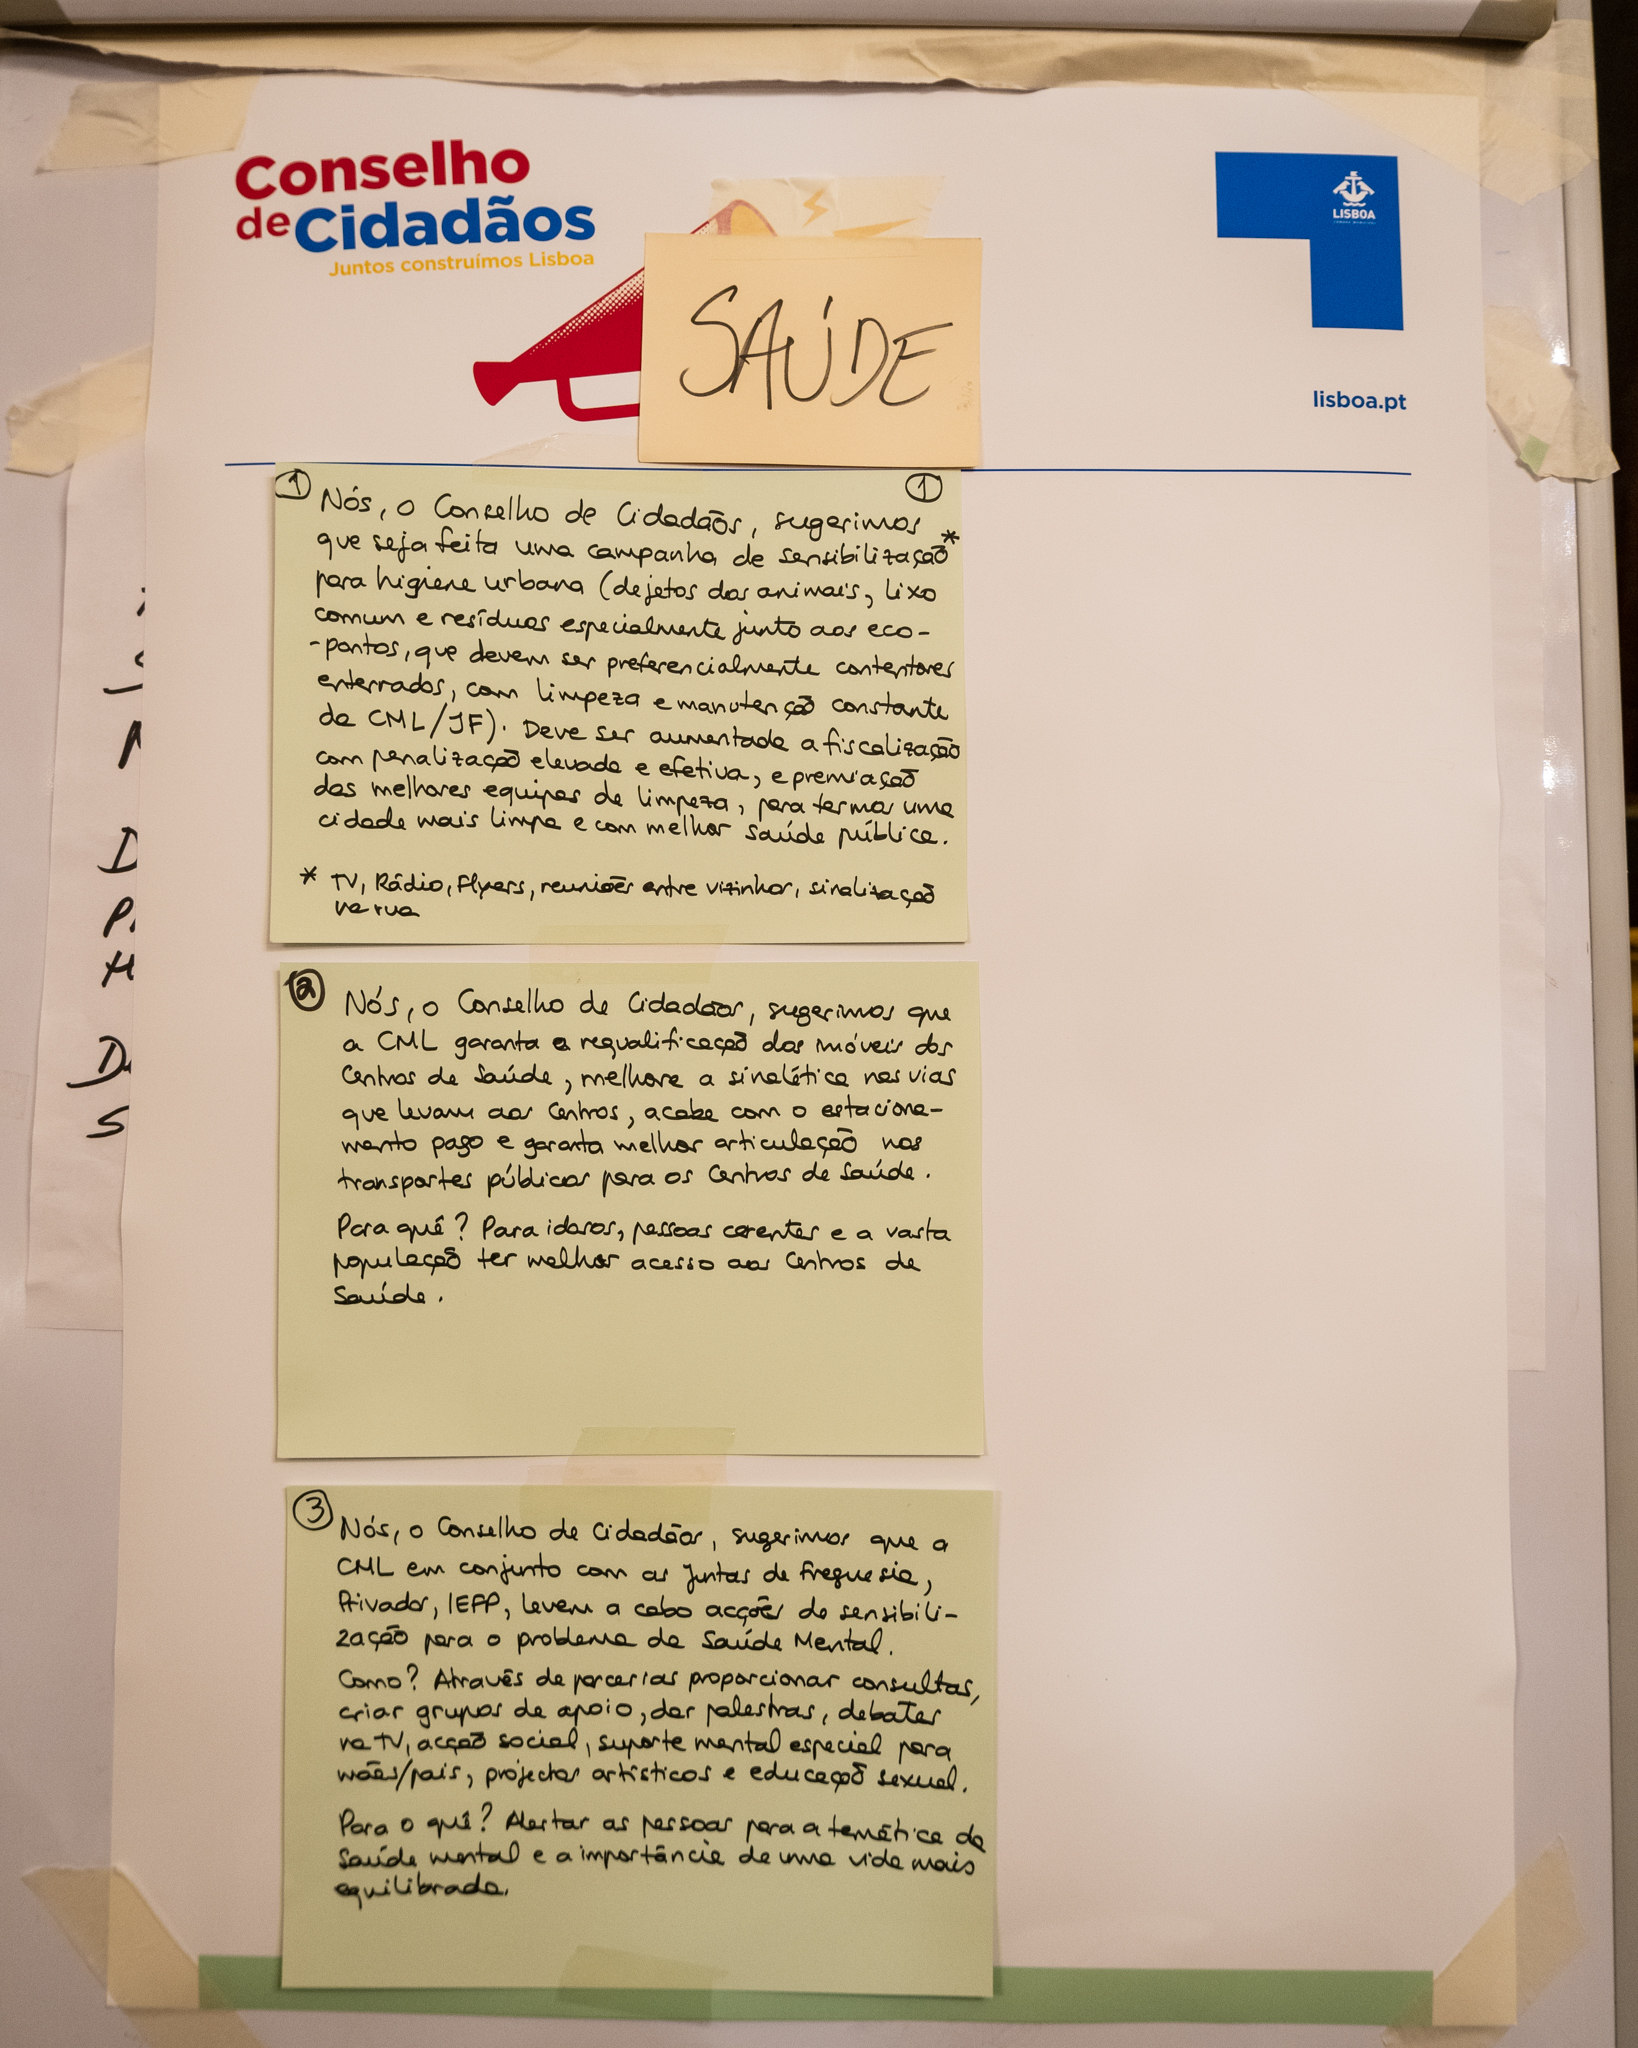 Conselho
de Cidadãos
Juntos construímos Lisboa
LISBOA
lisboa.pt
SAÚDE
1 1
Nós, o Conselho de Cidadãos, sugerimos
que seja feita uma campanha de sensibilização*
para higiene urbana (dejetos dos animais, lixo
comum e resíduos especialmente junto aos eco-
-pontos, que devem ser preferencialmente contentores
enterrados, com limpeza e manutenção constante
da CML/JF). Deve ser aumentada a fiscalização
com penalização elevada e efetiva, e premiação
das melhores equipas de limpeza, para termos uma
cidade mais limpa e com melhor saúde pública.
* TV, Rádio, Flyers, reuniões entre vizinhos, sinalização
na rua
2
Nós, o Conselho de Cidadãos, sugerimos que
a CML garanta a requalificação dos imóveis dos
Centros de Saúde, melhore a sinalética nas vias
que levam aos Centros, acabe com o estaciona-
mento pago e garanta melhor articulação nos
transportes públicos para os Centros de Saúde.
Para quê? Para idosos, pessoas carentes e a vasta
população ter melhor acesso aos Centros de
Saúde.
3
Nós, o Conselho de Cidadãos, sugerimos que a
CML em conjunto com as Juntas de Freguesia,
Privados, IEFP, levem a cabo acções de sensibili-
zação para o problema da Saúde Mental.
Como? Através de parcerias proporcionar consultas,
criar grupos de apoio, dar palestras, debates
na TV, acção social, suporte mental especial para
mães/pais, projectos artísticos e educação sexual.
Para o quê? Alertar as pessoas para a temática da
Saúde mental e a importância de uma vida mais
equilibrada.